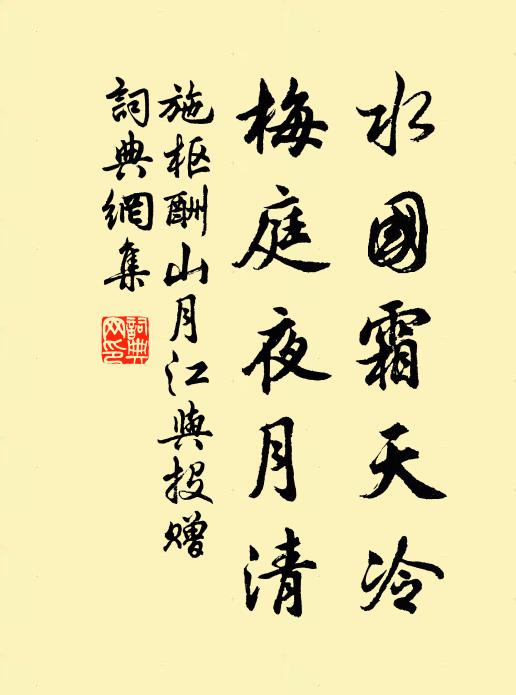 水國霜天冷
梅庭夜月清
施枢酬山月江與投贈
詞典網集
詞典網印